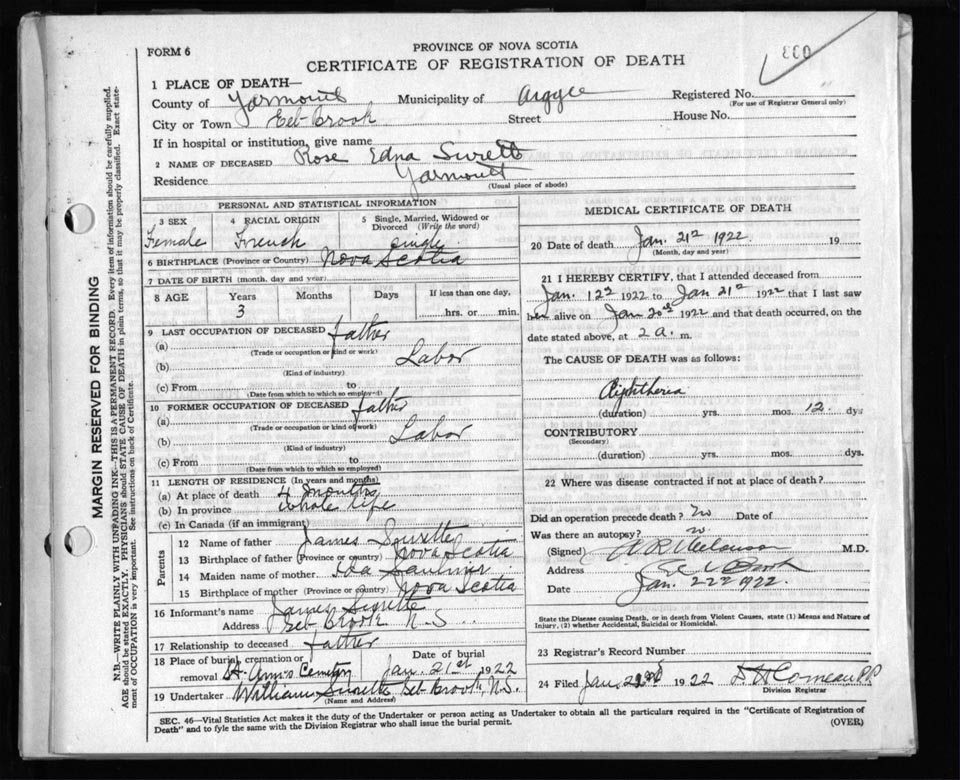 FORM 6
PROVINCE OF NOVA SCOTIA
CERTIFICATE OF REGISTRATION OF DEATH
1 PLACE OF DEATH—
County of Yarmouth Municipality of Argyle Registered No.
(For use of Registrar General only)
City or Town Eel-Brook Street House No.
If in hospital or institution, give name
2 NAME OF DECEASED Rose Edna Surett
Residence Yarmouth
(Usual place of abode)
PERSONAL AND STATISTICAL INFORMATION
3 SEX 4 RACIAL ORIGIN 5 Single, Married, Widowed or Divorced (Write the word)
Female French single
6 BIRTHPLACE (Province or Country) Nova Scotia
7 DATE OF BIRTH (month, day and year)
8 AGE Years Months Days If less than one day,
3 hrs. or min.
9 LAST OCCUPATION OF DECEASED father
(a)
(Trade or occupation or kind or work)
(b) Labor
(Kind of industry)
(c) From to
(Date from which to which so employed)
10 FORMER OCCUPATION OF DECEASED father
(a)
(Trade or occupation or kind of work)
(b) Labor
(Kind of industry)
(c) From to
(Date from which to which so employed)
11 LENGTH OF RESIDENCE (In years and months)
(a) At place of death 4 months
(b) In province Whole life
(c) In Canada (if an immigrant)
Parents
12 Name of father James Surette
13 Birthplace of father (Province or country) Nova Scotia
14 Maiden name of mother Ida Saulnier
15 Birthplace of mother (Province or country) Nova Scotia
16 Informant's name James Surette
Address Eel-Brook N-S
17 Relationship to deceased father
18 Place of burial, cremation or removal St. Ann's Cemetery Date of burial Jan. 21st 1922
19 Undertaker William Surette Eel-Brook, N.S.
(Name and Address)
MEDICAL CERTIFICATE OF DEATH
20 Date of death Jan. 21st 1922 19
(Month, day and year)
21 I HEREBY CERTIFY, that I attended deceased from
Jan. 12th 1922 to Jan 21st 1922 that I last saw
her alive on Jan 20th 1922 and that death occurred, on the
date stated above, at 2 a. m.
The CAUSE OF DEATH was as follows:
Diphtheria
(duration) yrs. mos. 12 dys
CONTRIBUTORY
(Secondary)
(duration) yrs. mos. dys.
22 Where was disease contracted if not at place of death?
Did an operation precede death? No Date of
Was there an autopsy? no
(Signed) A R Melanson M.D.
Address Eel Brook
Date Jan. 22nd 1922.
State the Disease causing Death, or in death from Violent Causes, state (1) Means and Nature of Injury, (2) whether Accidental, Suicidal or Homicidal.
23 Registrar's Record Number
24 Filed Jan 22nd 1922 D H Comeau PP
Division Registrar
SEC. 46—Vital Statistics Act makes it the duty of the Undertaker or person acting as Undertaker to obtain all the particulars required in the "Certificate of Registration of
Death" and to fyle the same with the Division Registrar who shall issue the burial permit.
(OVER)
MARGIN RESERVED FOR BINDING
N.B.—WRITE PLAINLY WITH UNFADING INK—THIS IS A PERMANENT RECORD. Every item of information should be carefully supplied.
AGE should be stated EXACTLY. PHYSICIANS should STATE CAUSE OF DEATH in plain terms, so that it may be properly classified. Exact statement of OCCUPATION is very important. See instructions on back of Certificate.